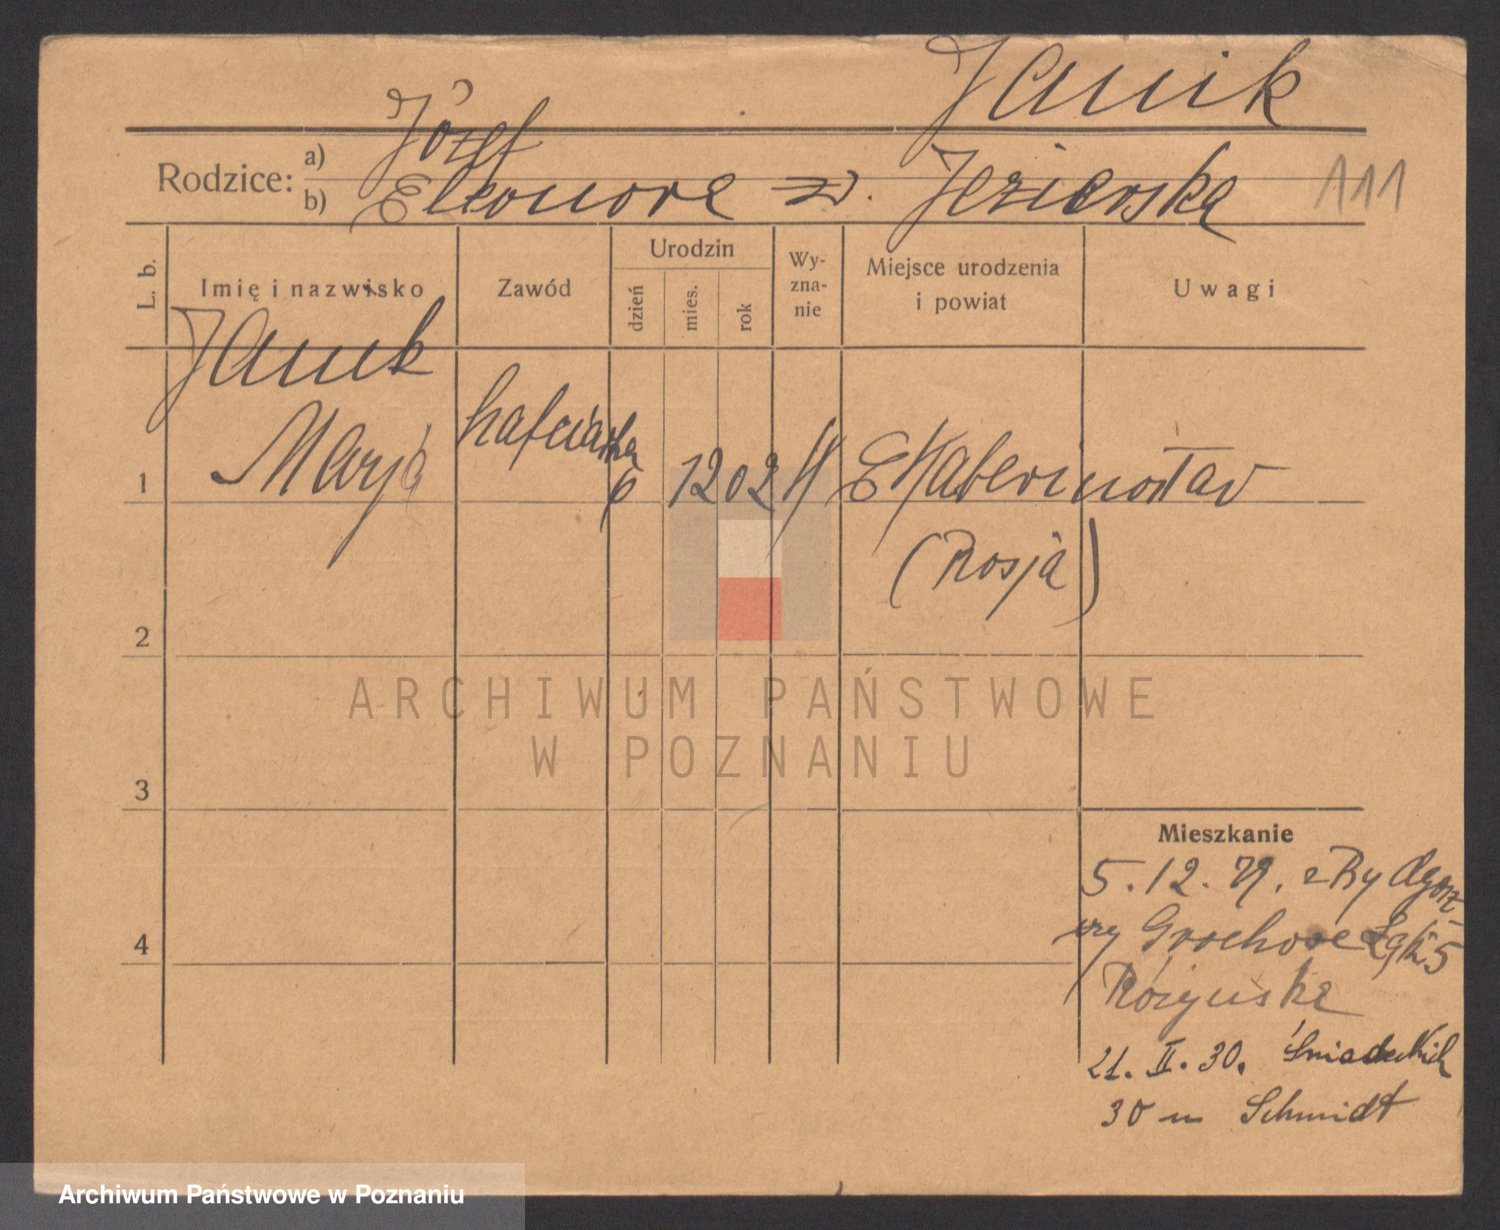 Janik
Rodzice: a) Józef
b) Eleonore z d. Jezierska
A11
L. b. Imię i nazwisko Zawód Urodzin dzień mies. rok Wy-zna-nie Miejsce urodzenia i powiat Uwagi
Janik
1 Marja hafciarka 6 12 02 Ekaterinosław
(Rosja)
2
3
4
Mieszkanie
5.12.29. z Bydgosz-
czy Grochowe Łąki 5
Różyńska
21. II. 30. Śniadeckich
30 m Schmidt
ARCHIWUM PAŃSTWOWE
W POZNANIU
Archiwum Państwowe w Poznaniu